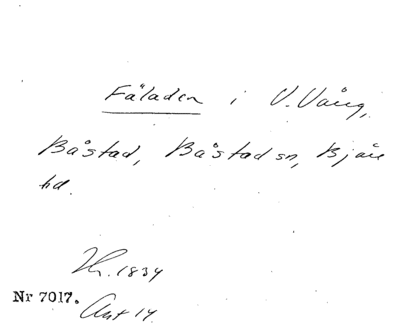 Fäladen i V. Vång,
Båstad, Båstad sn, Bjäre
hd.
1834
Nr 7017.
Akt 14